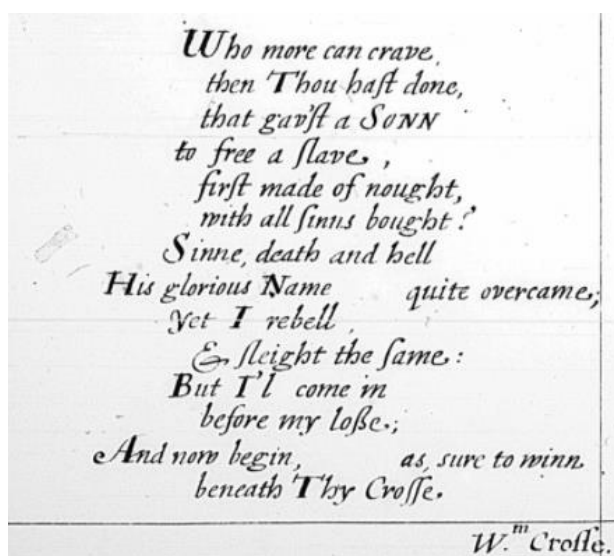 Who more can crave
then Thou hast done,
that gav'st a SONN
to free a slave,
first made of nought,
with all sinns bought?
Sinne, death and hell
His glorious Name quite overcame,
Yet I rebell,
& sleight the same:
But I'l come in
before my loße,
And now begin, as, sure to winn
beneath Thy Crosse.
W.m Crosse.